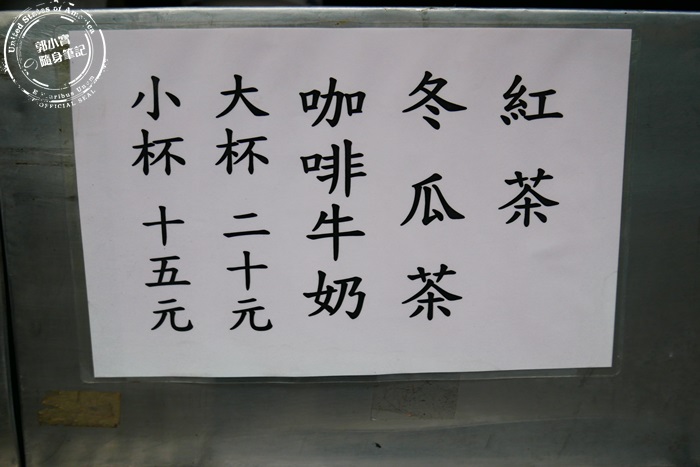 紅茶
冬瓜茶
咖啡牛奶
大杯 二十元
小杯 十五元
United States of America
郭小寶
の隨身筆記
E Pluribus Unum
OFFICIAL SEAL